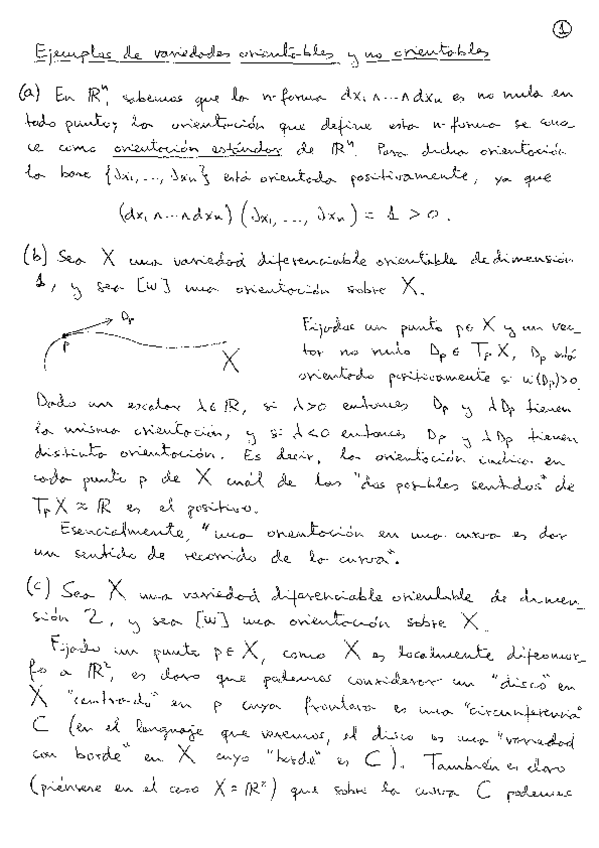 1
Ejemplos de variedades orientables y no orientables
(a) En ℝⁿ, sabemos que la n-forma dx₁∧...∧dxₙ es no nula en
todo punto; la orientación que define esta n-forma se cono_
ce como orientación estándar de ℝⁿ. Para dicha orientación
la base {∂x₁, ..., ∂xₙ} está orientada positivamente, ya que
(dx₁∧...∧dxₙ)(∂x₁, ..., ∂xₙ) = 1 > 0.
(b) Sea X una variedad diferenciable orientable de dimensión
1, y sea [w] una orientación sobre X.
Dₚ
p
X
Fijados un punto p∈X y un vec_
tor no nulo Dₚ∈TₚX, Dₚ está
orientado positivamente si w(Dₚ)>0.
Dado un escalar λ∈ℝ, si λ>0 entonces Dₚ y λDₚ tienen
la misma orientación, y si λ<0 entonces Dₚ y λDₚ tienen
distinta orientación. Es decir, la orientación indica en
cada punto p de X cuál de los "dos posibles sentidos" de
TₚX ≈ ℝ es el positivo.
Esencialmente, "una orientación en una curva es dar
un sentido de recorrido de la curva".
(c) Sea X una variedad diferenciable orientable de dimen_
sión 2, y sea [w] una orientación sobre X.
Fijado un punto p∈X, como X es localmente difeomor_
fo a ℝ², es claro que podemos considerar un "disco" en
X "centrado" en p cuya frontera es una "circunferencia"
C (en el lenguaje que veremos, el disco es una "variedad
con borde" en X cuyo "borde" es C). También es claro
(piénsese en el caso X = ℝ²) que sobre la curva C podemos